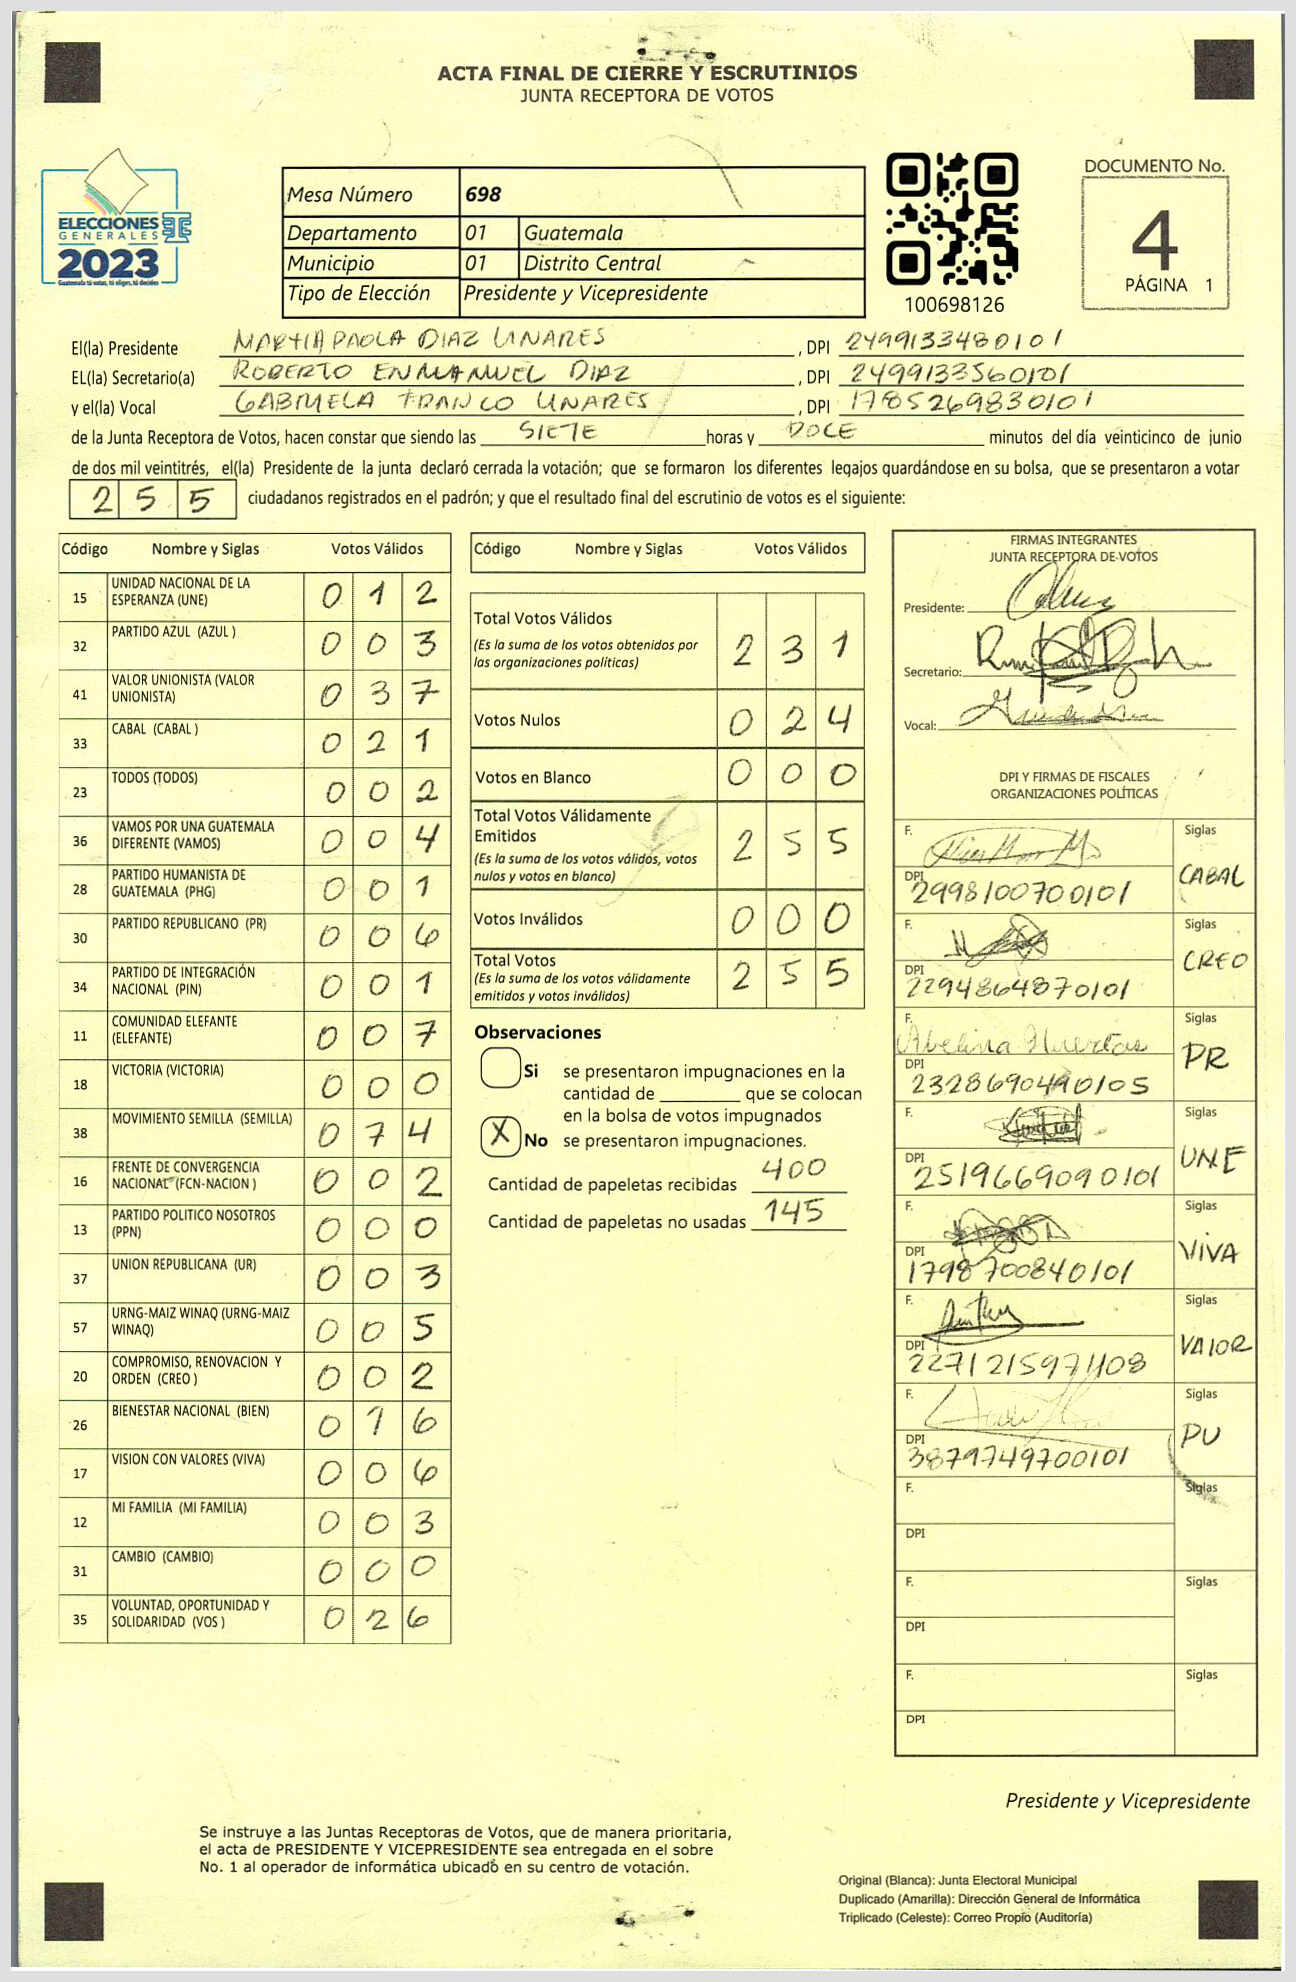 ACTA FINAL DE CIERRE Y ESCRUTINIOS
JUNTA RECEPTORA DE VOTOS
ELECCIONES
GENERALES
2023
Guatemala tú votas, tú eliges, tú decides
Mesa Número 698
Departamento 01 Guatemala
Municipio 01 Distrito Central
Tipo de Elección Presidente y Vicepresidente
100698126
DOCUMENTO No.
4
PÁGINA 1
El(la) Presidente PAOLA DIAZ LINARES, DPI 2499133480101
EL(la) Secretario(a) ROBERTO ENMANUEL DIAZ, DPI 2499133560101
y el(la) Vocal GABRIELA FRANCO LINARES, DPI 1785269830101
de la Junta Receptora de Votos, hacen constar que siendo las SIETE horas y DOCE minutos del día veinticinco de junio
de dos mil veintitrés, el(la) Presidente de la junta declaró cerrada la votación; que se formaron los diferentes legajos guardándose en su bolsa, que se presentaron a votar
255 ciudadanos registrados en el padrón; y que el resultado final del escrutinio de votos es el siguiente:
Código Nombre y Siglas Votos Válidos
15 UNIDAD NACIONAL DE LA ESPERANZA (UNE) 0 1 2
32 PARTIDO AZUL (AZUL ) 0 0 3
41 VALOR UNIONISTA (VALOR UNIONISTA) 0 3 7
33 CABAL (CABAL ) 0 2 1
23 TODOS (TODOS) 0 0 2
36 VAMOS POR UNA GUATEMALA DIFERENTE (VAMOS) 0 0 4
28 PARTIDO HUMANISTA DE GUATEMALA (PHG) 0 0 1
30 PARTIDO REPUBLICANO (PR) 0 0 6
34 PARTIDO DE INTEGRACIÓN NACIONAL (PIN) 0 0 1
11 COMUNIDAD ELEFANTE (ELEFANTE) 0 0 7
18 VICTORIA (VICTORIA) 0 0 0
38 MOVIMIENTO SEMILLA (SEMILLA) 0 7 4
16 FRENTE DE CONVERGENCIA NACIONAL (FCN-NACION ) 0 0 2
13 PARTIDO POLITICO NOSOTROS (PPN) 0 0 0
37 UNION REPUBLICANA (UR) 0 0 3
57 URNG-MAIZ WINAQ (URNG-MAIZ WINAQ) 0 0 5
20 COMPROMISO, RENOVACION Y ORDEN (CREO ) 0 0 2
26 BIENESTAR NACIONAL (BIEN) 0 1 6
17 VISION CON VALORES (VIVA) 0 0 6
12 MI FAMILIA (MI FAMILIA) 0 0 3
31 CAMBIO (CAMBIO) 0 0 0
35 VOLUNTAD, OPORTUNIDAD Y SOLIDARIDAD (VOS ) 0 2 6
Código Nombre y Siglas Votos Válidos
Total Votos Válidos 2 3 1
(Es la suma de los votos obtenidos por
las organizaciones políticas)
Votos Nulos 0 2 4
Votos en Blanco 0 0 0
Total Votos Válidamente
Emitidos 2 5 5
(Es la suma de los votos válidos, votos
nulos y votos en blanco)
Votos Inválidos 0 0 0
Total Votos 2 5 5
(Es la suma de los votos válidamente
emitidos y votos inválidos)
Observaciones
Si se presentaron impugnaciones en la
cantidad de ________ que se colocan
en la bolsa de votos impugnados
X No se presentaron impugnaciones.
Cantidad de papeletas recibidas 400
Cantidad de papeletas no usadas 145
FIRMAS INTEGRANTES
JUNTA RECEPTORA DE VOTOS
Presidente:
Secretario:
Vocal:
DPI Y FIRMAS DE FISCALES
ORGANIZACIONES POLÍTICAS
F. Siglas
DPI 2998100700101 CABAL
F. Siglas
DPI 2294864870101 CREO
F. Abelina Huertas Siglas
DPI 2328690490105 PR
F. Siglas
DPI 2519669090101 UNE
F. Siglas
DPI 1798700840101 VIVA
F. Siglas
DPI 2271215971108 VALOR
F. Siglas
DPI 3879749700101 PU
F. Siglas
DPI
F. Siglas
DPI
F. Siglas
DPI
Presidente y Vicepresidente
Se instruye a las Juntas Receptoras de Votos, que de manera prioritaria,
el acta de PRESIDENTE Y VICEPRESIDENTE sea entregada en el sobre
No. 1 al operador de informática ubicado en su centro de votación.
Original (Blanca): Junta Electoral Municipal
Duplicado (Amarilla): Dirección General de Informática
Triplicado (Celeste): Correo Propio (Auditoría)